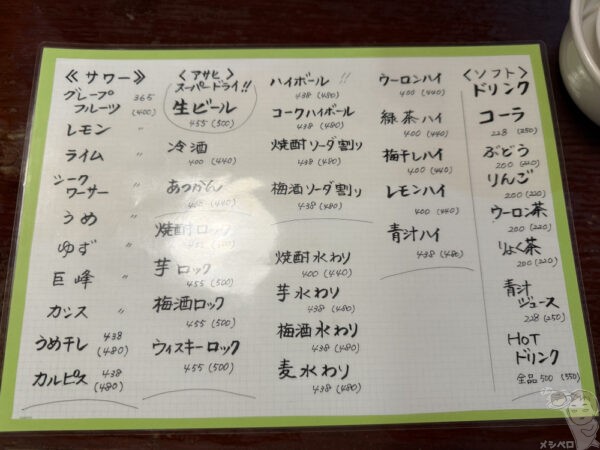 ≪サワー≫
グレープ
フルーツ 365
(400)
レモン 〃
ライム 〃
シーク
ワーサー 〃
うめ 〃
ゆず 〃
巨峰 〃
カシス 〃
うめ干し 438
(480)
カルピス 438
(480)
〈アサヒ〉
スーパードライ!!
生ビール
455 (500)
冷酒
400 (440)
あつかん
(440)
焼酎ロック
455 (500)
芋ロック
455 (500)
梅酒ロック
455 (500)
ウィスキーロック
455 (500)
ハイボール!!
438 (480)
コークハイボール
438 (480)
焼酎ソーダ割り
438 (480)
梅酒ソーダ割り
438 (480)
焼酎水わり
400 (440)
芋水わり
438 (480)
梅酒水わり
438 (480)
麦水わり
438 (480)
ウーロンハイ
400 (440)
緑茶ハイ
400 (440)
梅干しハイ
400 (440)
レモンハイ
400 (440)
青汁ハイ
438 (480)
〈ソフト〉
ドリンク
コーラ
228 (250)
ぶどう
200 (220)
りんご
200 (220)
ウーロン茶
200 (220)
りょく茶
200 (220)
青汁
ジュース
228 (250)
HOT
ドリンク
全品 500 (550)
メシペロ